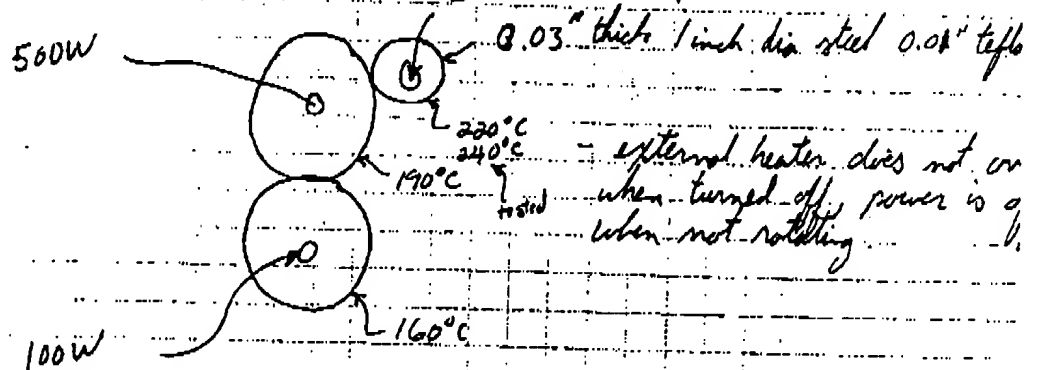 500W
0.03" thick 1 inch dia steel 0.01" teflo
220°C
240°C
tested
190°C
- external heater does not ov
when turned off, power is o
when not rotating
160°C
100W